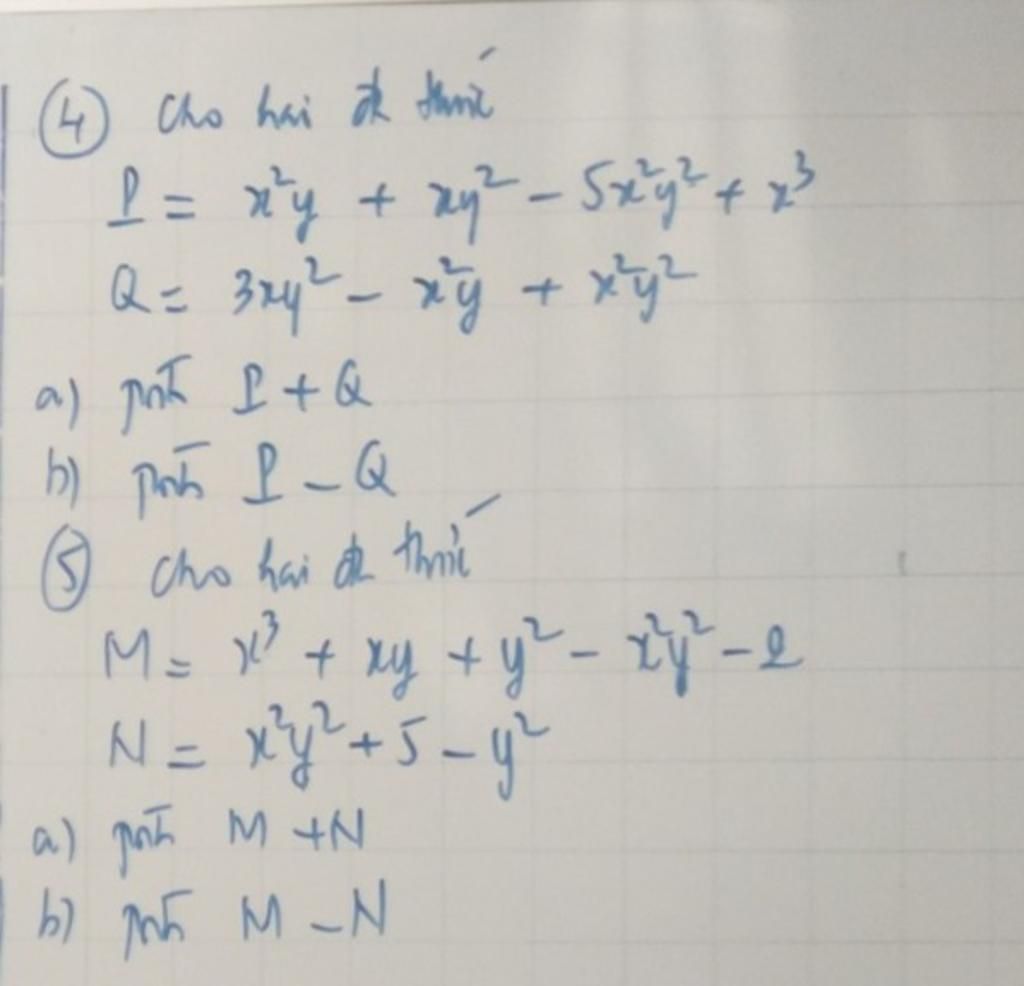 ④ Cho hai đa thức
P = x²y + xy² - 5x²y² + x³
Q = 3xy² - x²y + x²y²
a) P + Q
b) P - Q
⑤ Cho hai đa thức
M = x³ + xy + y² - x²y² - 2
N = x²y² + 5 - y²
a) M + N
b) M - N